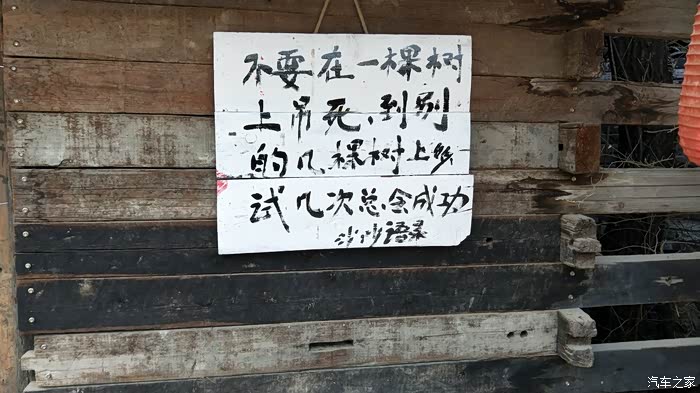 不要在一棵树
上吊死、到别
的几棵树上多
试几次总会成功
沙沙语录
汽车之家